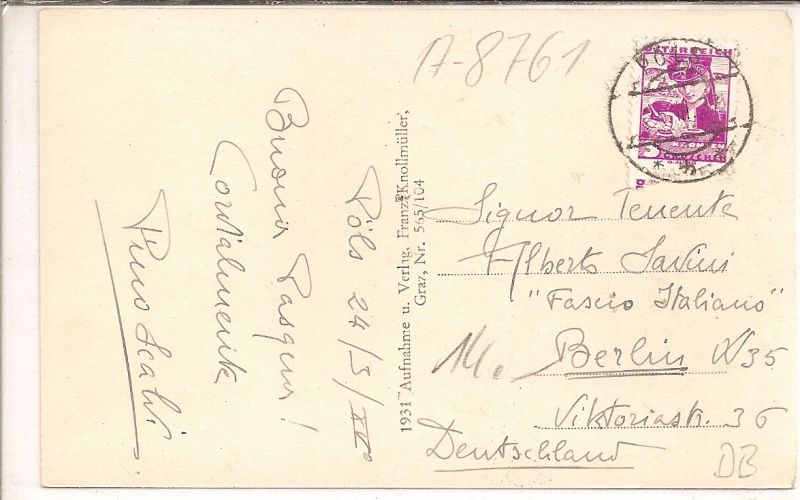 A-8761
ÖSTERREICH
KÄRNTEN
3
Pöls 24/3/XII°
Buona Pasqua!
Cordialmente
Pino
1931 Aufnahme u. Verlag, Franz Knollmüller,
Graz, Nr. 565/104
Signor Tenente
Alberto Savini
"Fascio Italiano"
Berlin W35
Viktoriastr. 36
Deutschland
DB